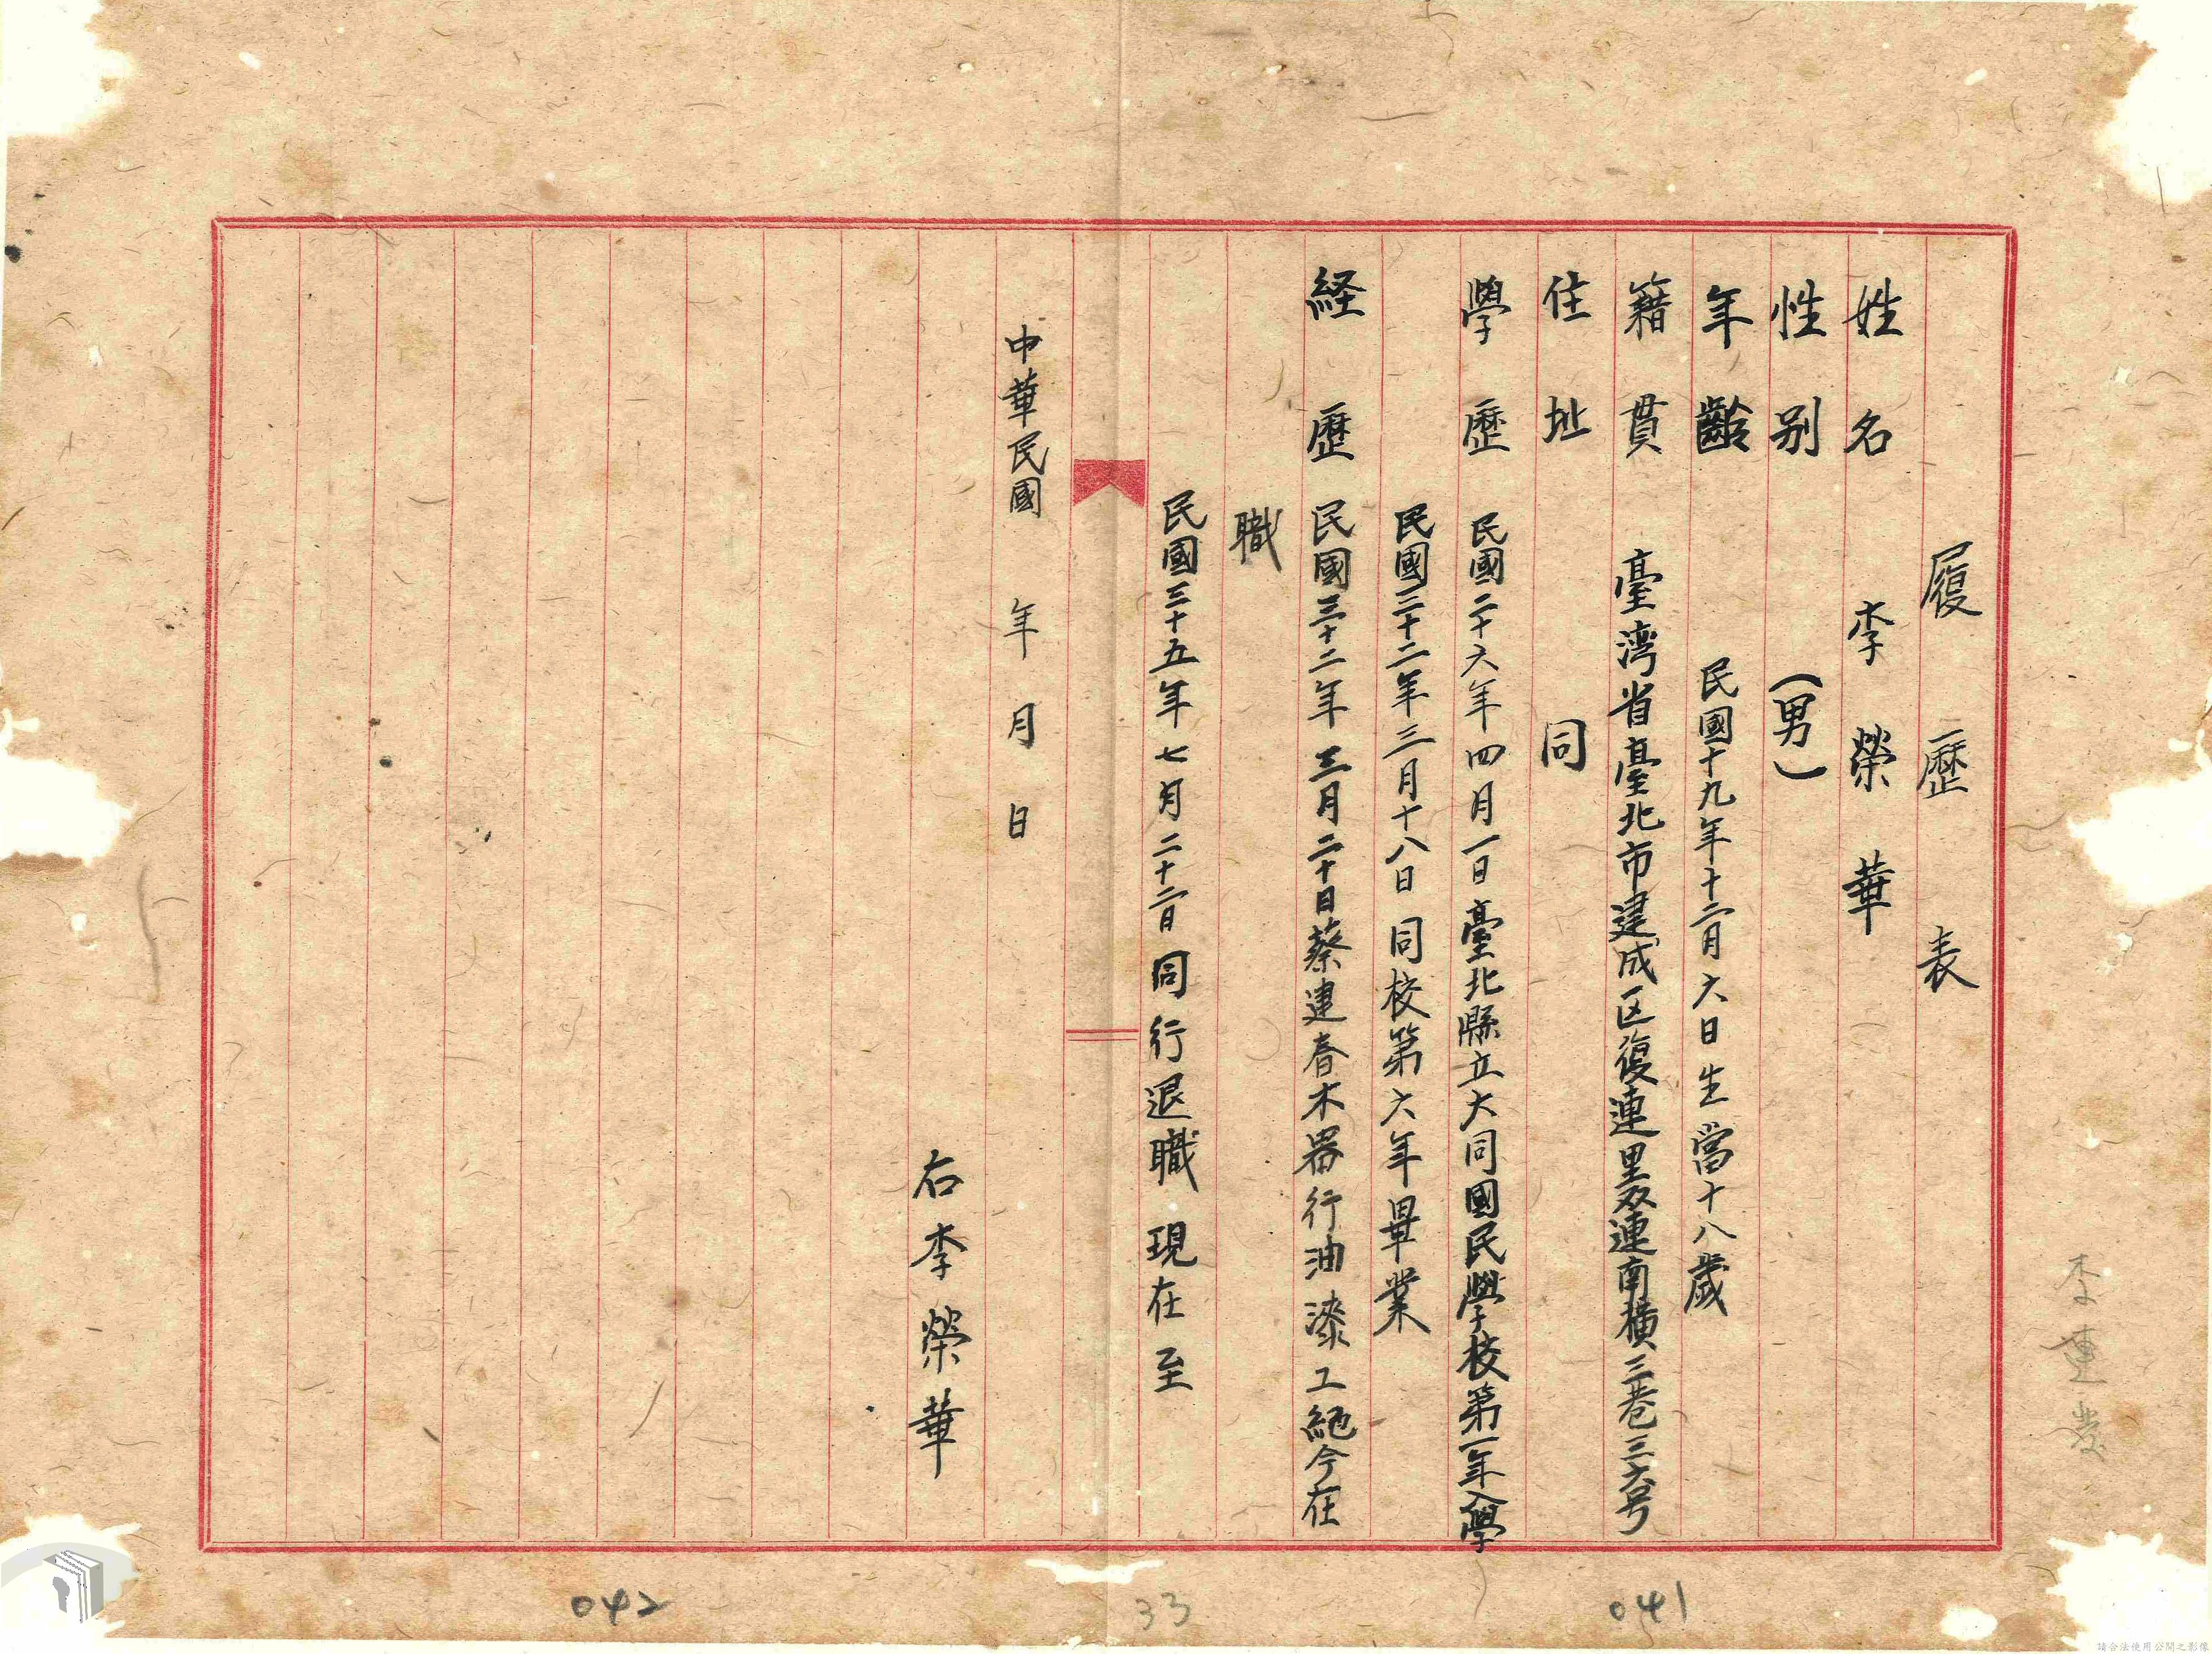 履歷表
姓名 李榮華
性別 (男)
年齡 民國十九年十二月六日生當十八歲
籍貫 臺湾省臺北市建成区復連里双連南横三巷三六号
住址 同
學歷 民國二十六年四月一日臺北縣立大同國民學校第一年入學
民國三十二年三月十八日同校第六年畢業
経歷 民國三十二年三月二十日蔡建春木器行油漆工絕今在
職
民國三十五年七月二十二日同行退職現在至
中華民國 年 月 日
右李榮華
041
33
042
請合法使用公開之影像